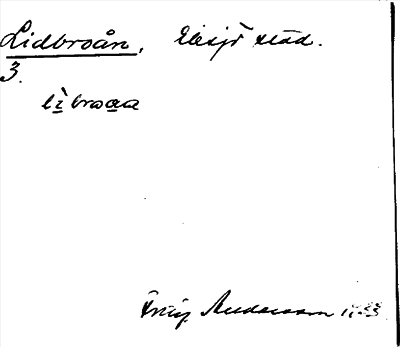 Lidbroån, Eksjö stad.
3.
lìbroaa
Andersson 1933